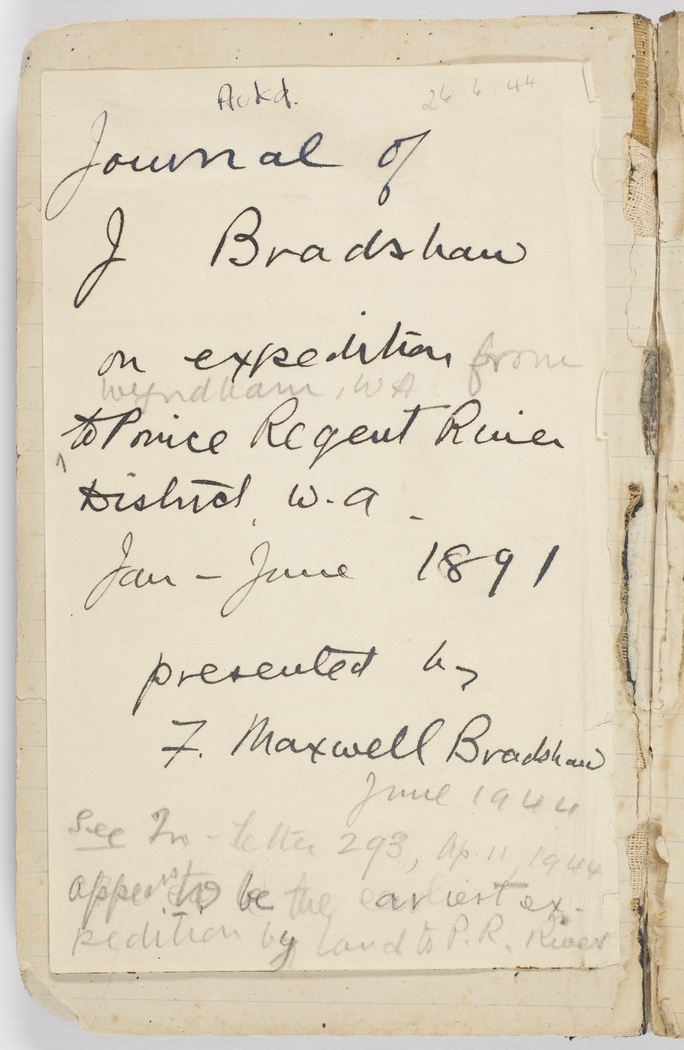 Ackd. 26 6 44
Journal of
J Bradshaw
on expedition from
Wyndham, WA
to Prince Regent River
District, W.A.
Jan - June 1891
presented by
F. Maxwell Bradshaw
June 1944
See In-Letter 293, Ap. 11, 1944
appears to be the earliest ex-
pedition by land to P.R. River